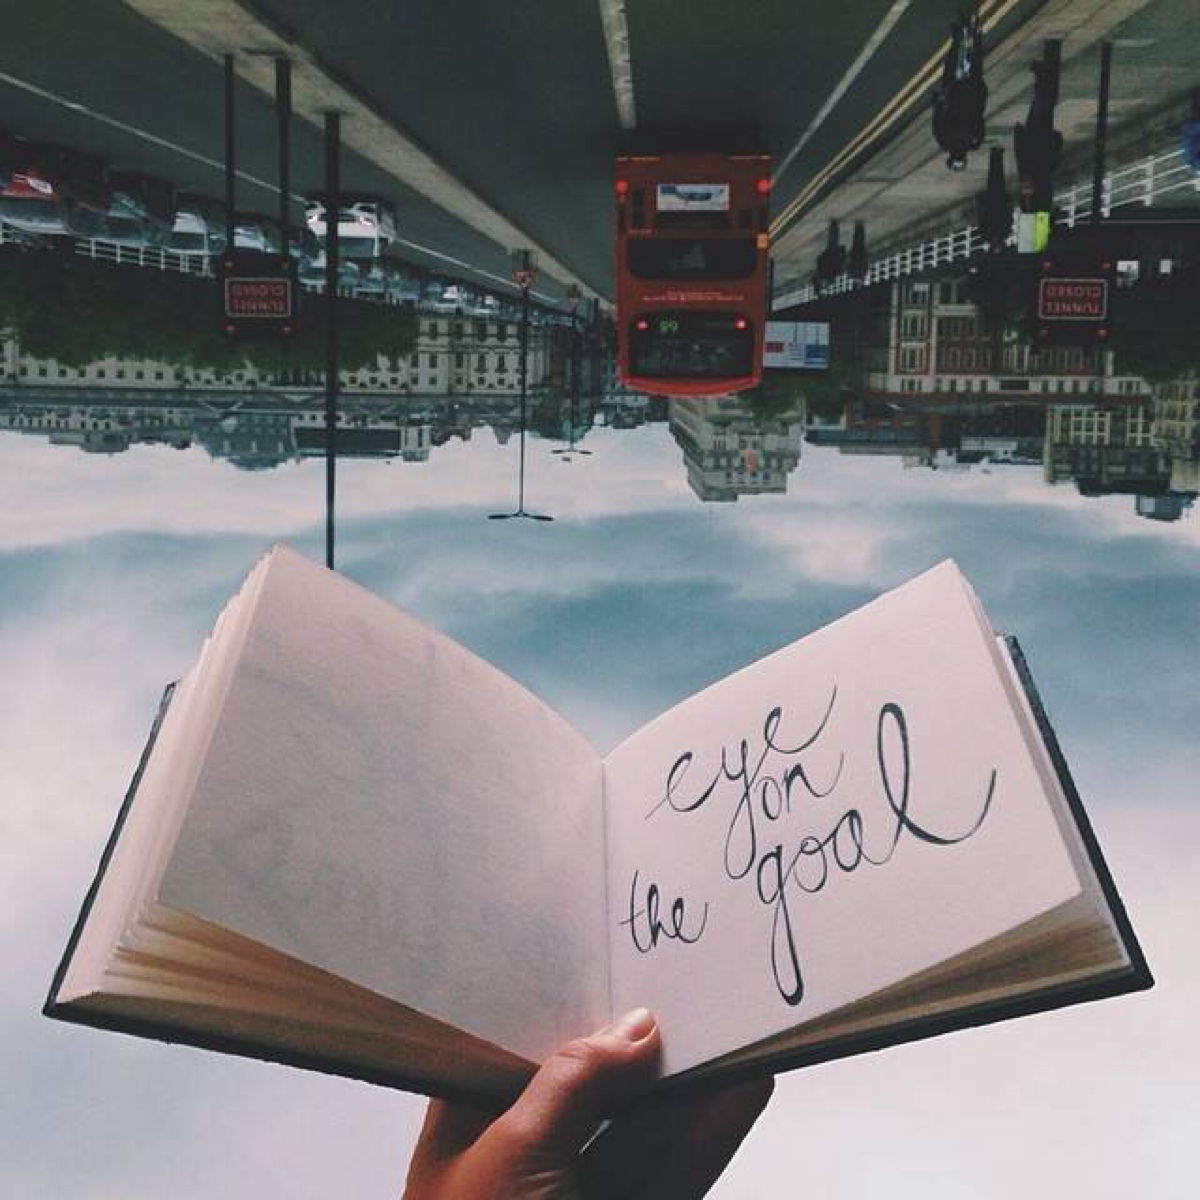 eye
on
the goal
TUNNEL
CLOSED
TUNNEL
CLOSED